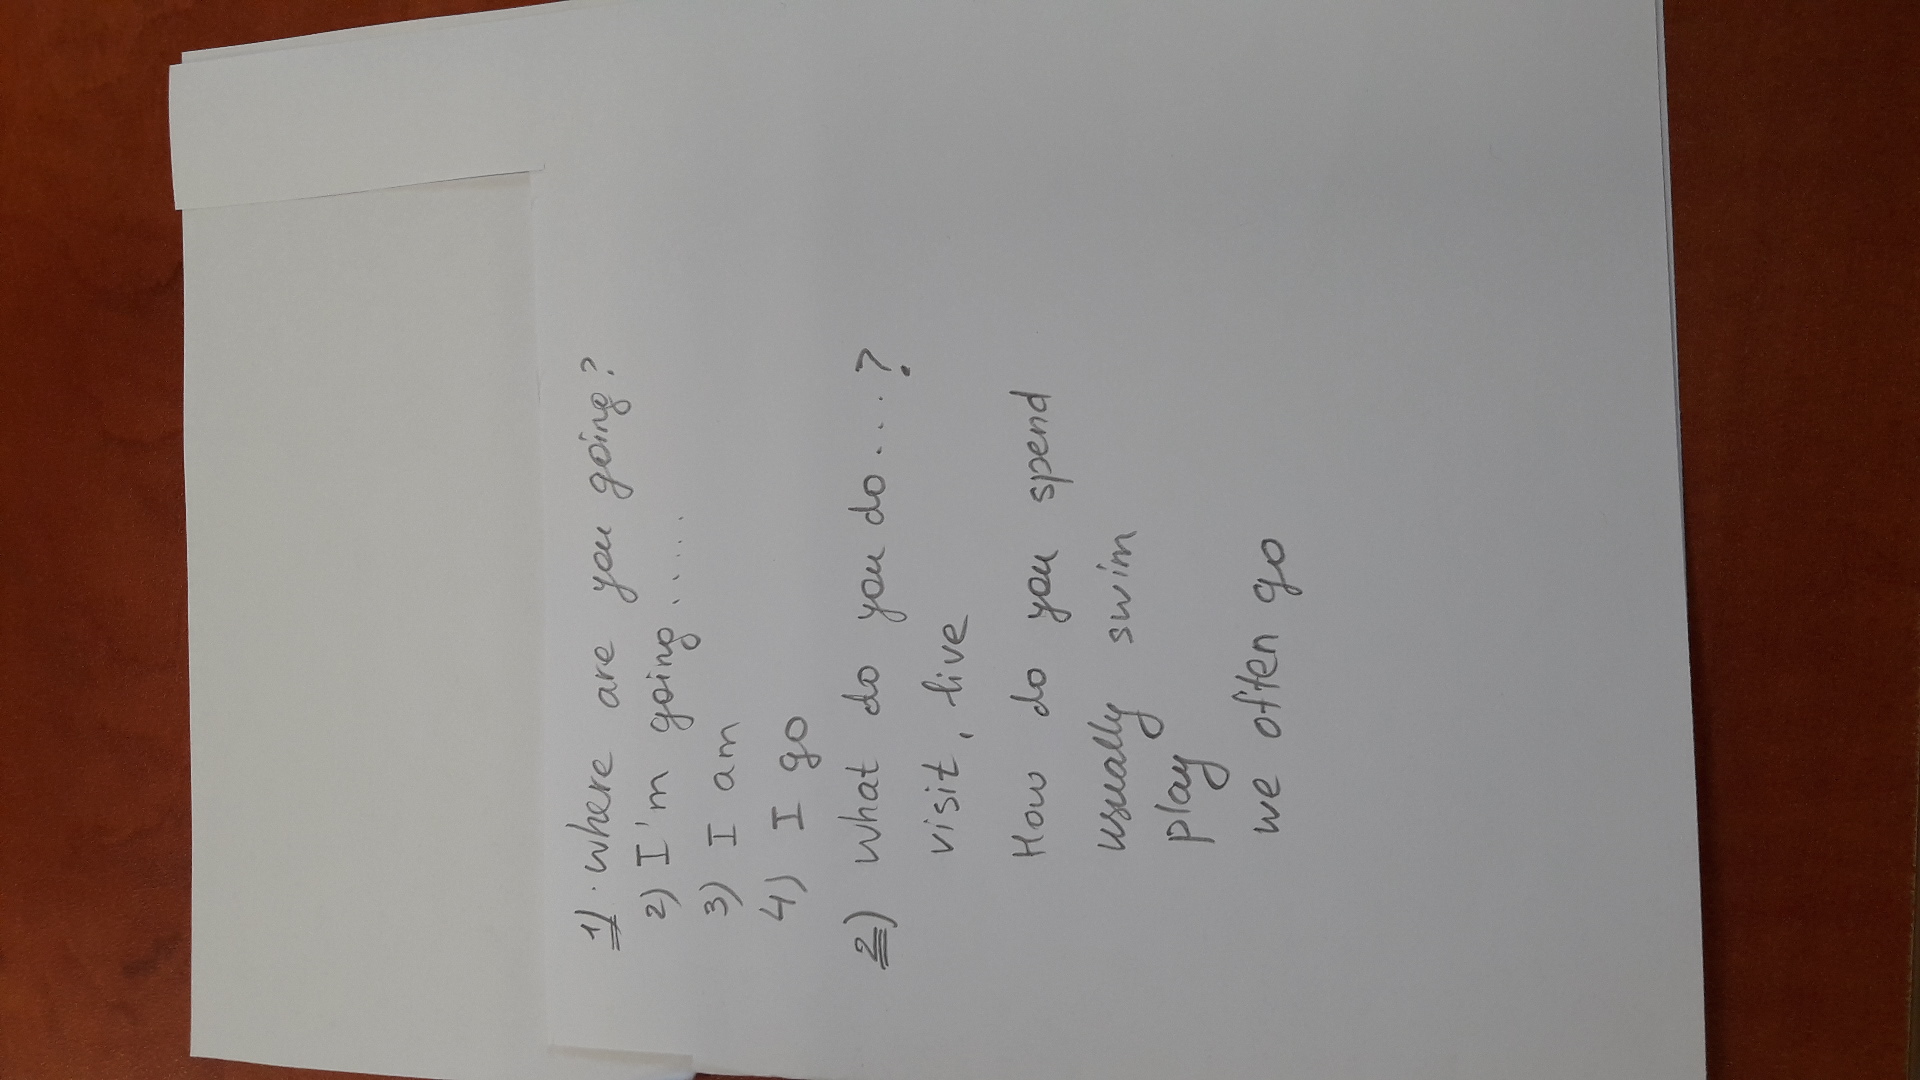 1) · where are you going?
2) I'm going.....
3) I am
4) I go
2) What do you do....?
visit, live
How do you spend
usually swim
play
we often go